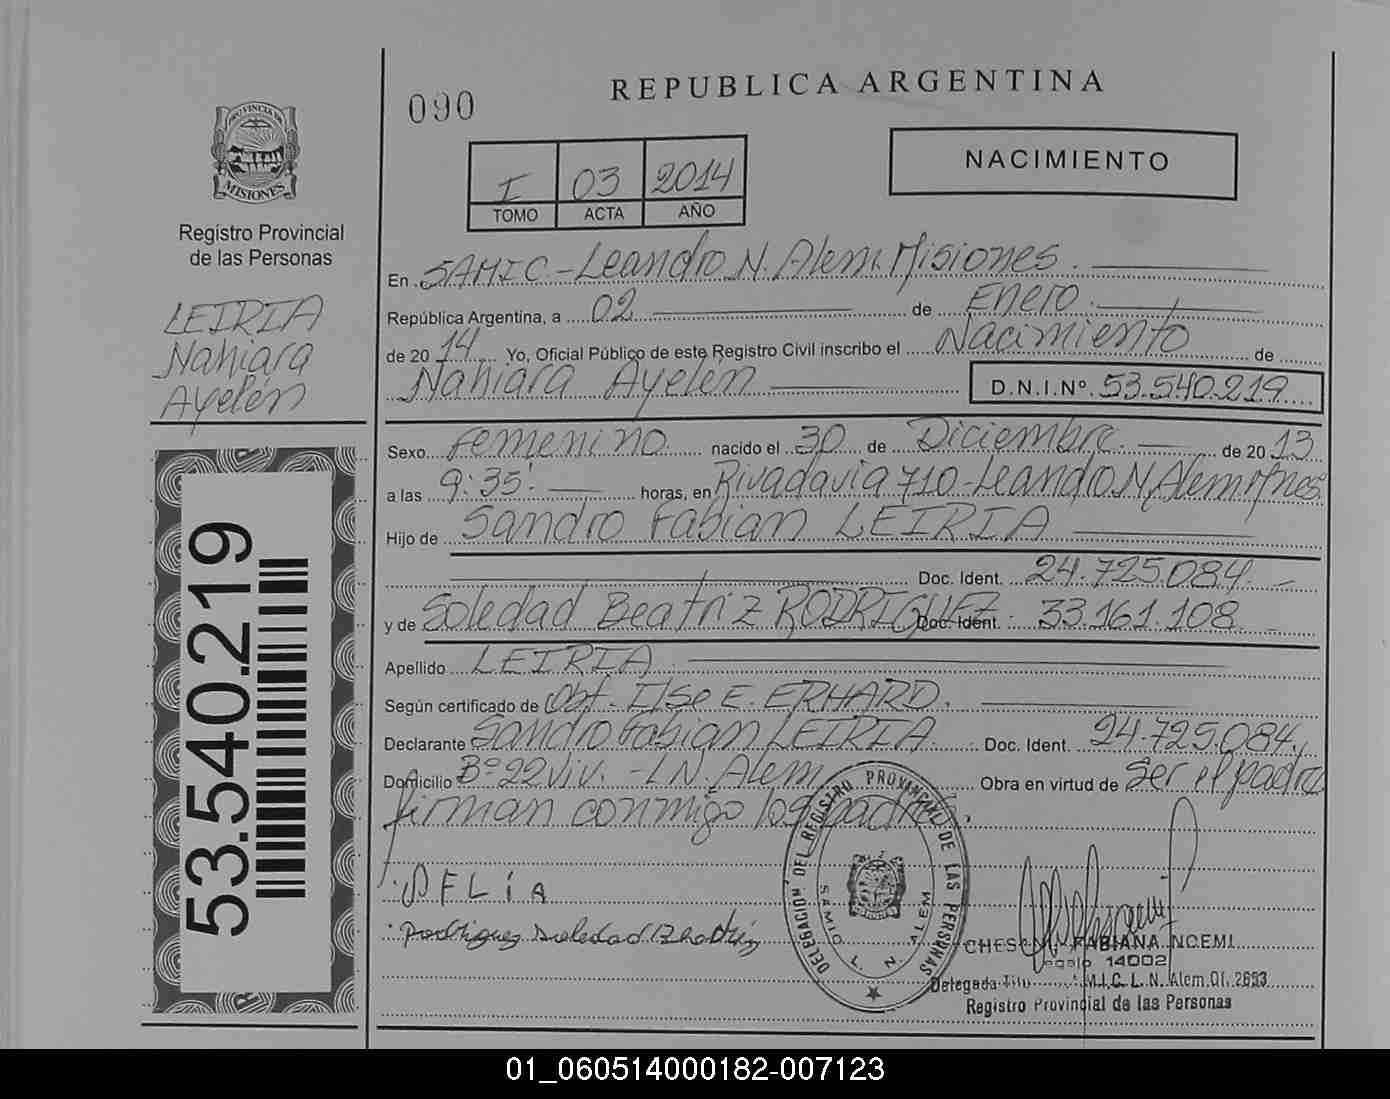 090
REPUBLICA ARGENTINA
PROVINCIA DE
MISIONES
Registro Provincial
de las Personas
LEIRIA
Nahiara
Ayelén
53.540.219
I 03 2014
TOMO ACTA AÑO
NACIMIENTO
En SAMIC - Leandro N. Alem. Misiones.
República Argentina, a 02 de Enero.
de 2014 Yo, Oficial Público de este Registro Civil inscribo el Nacimiento de
Nahiara Ayelén D.N.I.Nº. 53.540.219
Sexo Femenino nacido el 30 de Diciembre. de 2013
a las 9:35' horas, en Rivadavia 710 - Leandro N. Alem Mnes
Hijo de Sandro Fabian LEIRIA
Doc. Ident. 24.725.084.
y de Soledad Beatriz RODRIGUEZ. Doc. Ident. 33.161.108
Apellido LEIRIA
Según certificado de Obt. Ilse E. ERHARD.
Declarante Sandro Fabian LEIRIA. Doc. Ident. 24.725.084.
Domicilio Bº 22 Viv. - L N. Alem Obra en virtud de Ser el padre
firman conmigo los padres.
Rodriguez Soledad Beatriz
DELEGACION DEL REGISTRO PROVINCIAL DE LAS PERSONAS
L. N. ALEM
FABIANA NOEMI
14002
Delegada L. N. Alem Of. 2693
Registro Provincial de las Personas
01_060514000182-007123